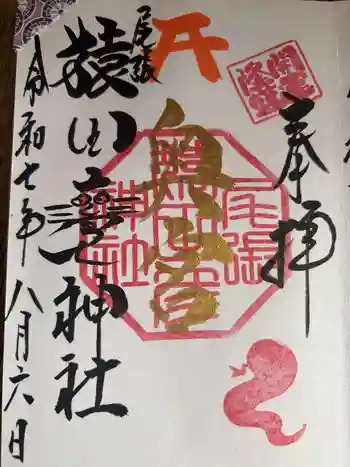 奉拝
奥宮
尾張
猿田彦神社
令和七年八月六日
尾張
猿田彦
神社